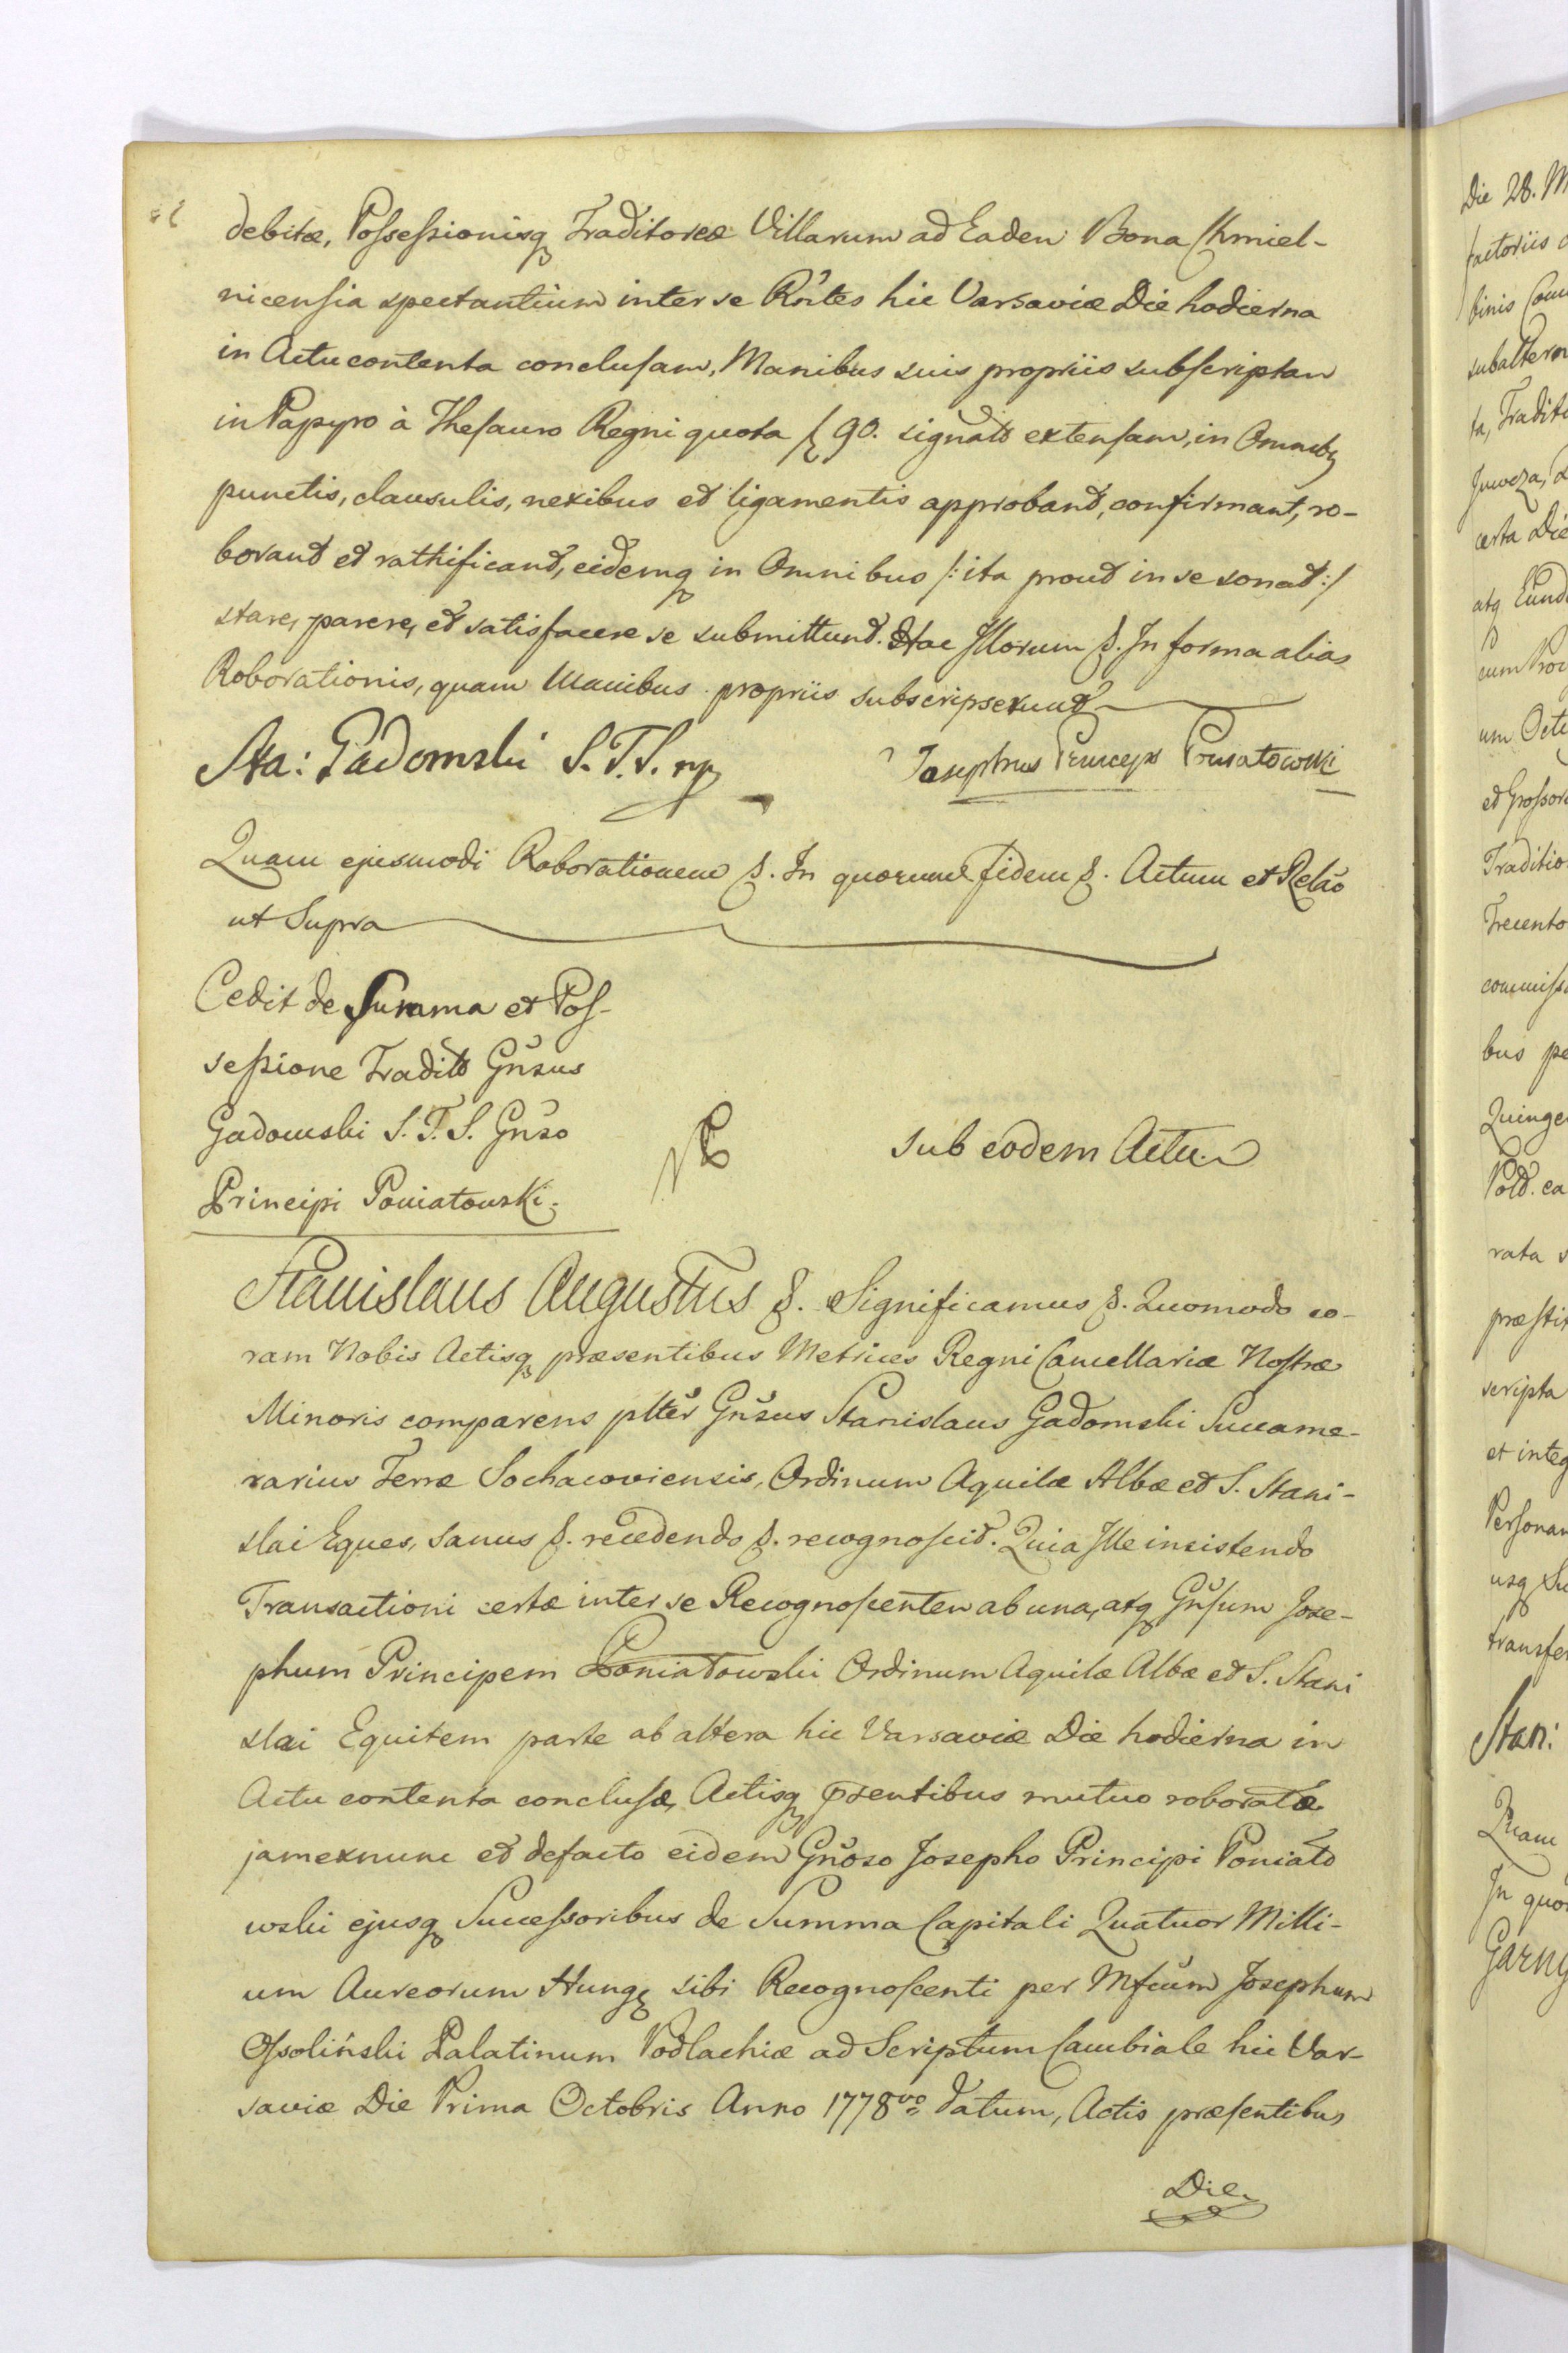 debitæ, Possessionisq Traditoreæ Villarum ad Eaden Bona Chmiel-
nicensia spectantium inter se Rñtes hic Varsaviæ Die hodierna
in Actu contenta conclusam, Manibus suis propriis subscriptam
in Papyro à Thesauro Regni quota f 90. signato extensam, in Omnibq
punctis, clausulis, nexibus et ligamentis approbant, confirmant, ro-
borant et rathificant, eidemq in Omnibus /: ita prout in se sonat :/
stare, parere, et satisfacere se submittunt. Hac Illorum &. In forma alias
Roborationis, quam Manibus propriis subscripserunt
Sta: Gadomski S.T.S. mp
Josephus Princeps Poniatowski
Quam ejusmodi Roborationem &. In quorum fidem &. Actum et Relão
ut Supra
Cedit de Summa et Pos-
sessione Tradito Gñsus
Gadomski S. T. S. Gñso
Principi Poniatowski.
sub eodem Actu
Stanislaus Augustus &. Significamus &. Quomodo co-
ram Nobis Actisq præsentibus Metrices Regni Cancellariæ Nostræ
Minoris comparens plter Gñsus Stanislaus Gadomski Succame-
rarius Terræ Sochacoviensis, Ordinum Aquilæ Albæ et S. Stani-
slai Eques, sanus &. recedendo &. recognoscit. Quia Ille insistendo
Transactioni certæ inter se Recognoscentem ab una, atq Gñsum Jose-
phum Principem Poniatowski Ordinum Aquilæ Albæ et S. Stani
slai Equitem parte ab altera hic Varsaviæ Die hodierna in
Actu contenta conclusæ, Actisq pr̃sentibus mutuo roboratæ
jamexnunc et defacto eidem Gñoso Josepho Principi Poniato
wski ejusq Successoribus de Summa Capitali Quatuor Milli-
um Aureorum Hungq sibi Recognoscenti per Mfcum Josephum
Ossoliński Palatinum Podlachiæ ad Scriptum Cambiale hic Var-
saviæ Die Prima Octobris Anno 1778vo datum, Actis præsentibus
Die
Die 28. M
factoriis
binis Com
subaltern
ta, Tradit
certa Die
atq Eund
cum Proc
um Octi
et Grossor
Traditio
Trecento
commisso
bus pe
Quinge
Pold. ea
rata
præstit
scripta
et integ
Personam
usq Su
transfer
Stan:
Quam
In quor